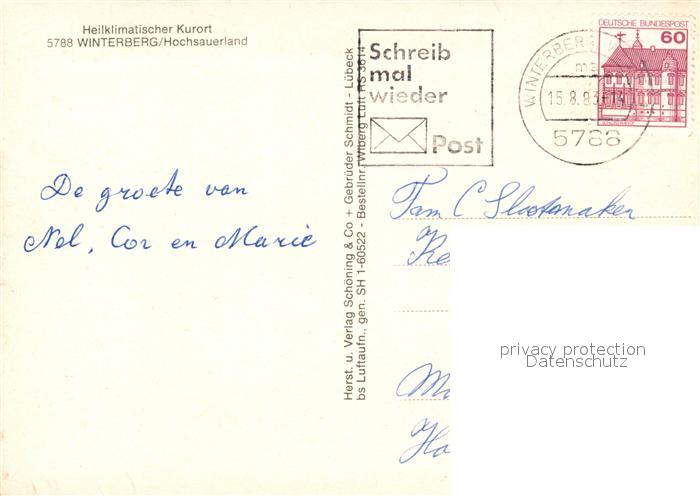 Heilklimatischer Kurort
5788 WINTERBERG/Hochsauerland
Schreib
mal
wieder
Post
WINTERBERG
15.8.83
5788
DEUTSCHE BUNDESPOST
60
De groete van
Nel, Cor en Marie
Herst. u. Verlag Schöning & Co + Gebrüder Schmidt - Lübeck
bs Luftaufn., gen. SH 1-60522 - Bestellnr. Wiberg Luft RS 3614
Fam C Slootmaker
privacy protection
Datenschutz